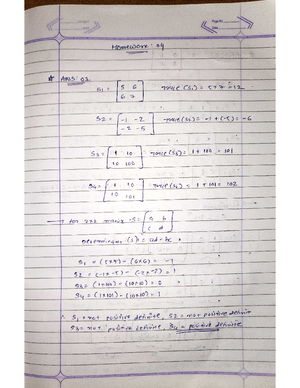 Homework: 04
# ANS: 02
S1 = [5 6
6 7] trace(S1) = 5+7 = 12
S2 = [-1 -2
-2 -5] trace(S2) = -1+(-5) = -6
S3 = [1 10
10 100] trace(S3) = 1+100 = 101
S4 = [1 10
10 101] trace(S4) = 1+101 = 102
→ for 2x2 matrix S = [a b
c d]
determinant (S) = ad - bc
S1 = (5×7) - (6×6) = -1
S2 = (-1×-5) - (-2×-2) = 1
S3 = (1×100) - (10×10) = 0
S4 = (1×101) - (10×10) = 1
∴ S1 = not positive definite, S2 = not positive definite
S3 = not positive definite, S4 = positive definite